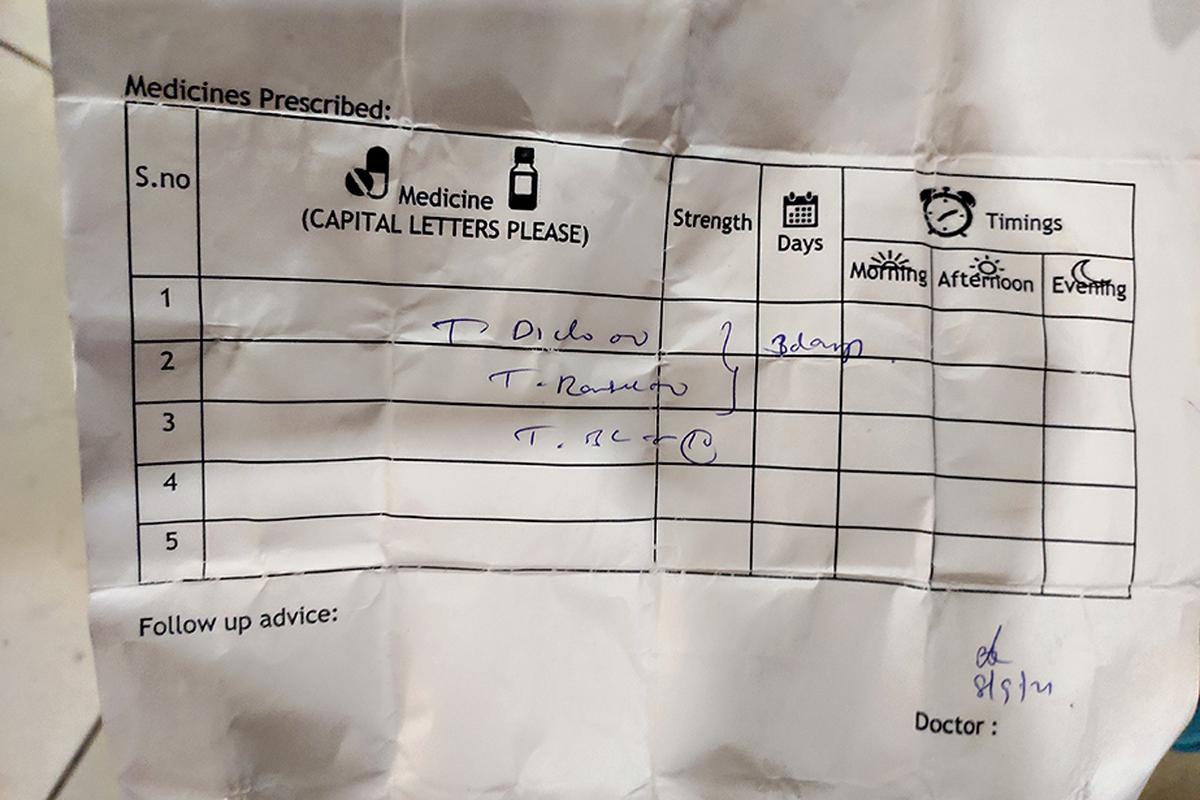 Medicines Prescribed:
S.no
Medicine
(CAPITAL LETTERS PLEASE)
Strength
Days
Timings
Morning
Afternoon
Evening
1
T Diclo
3days
2
T.
3
T. BC
4
5
Follow up advice:
8/9/21
Doctor :